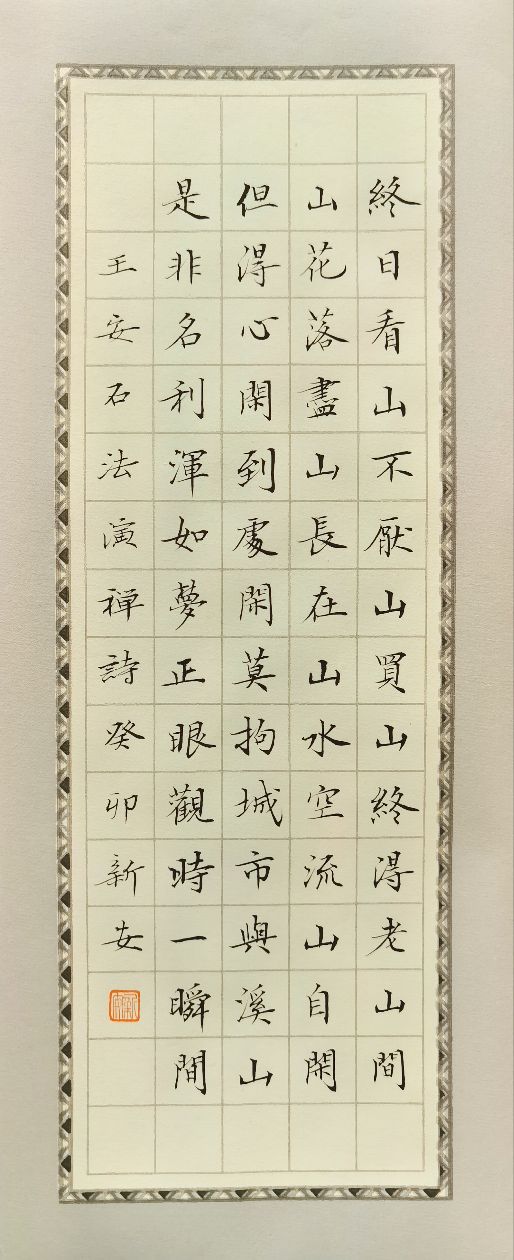 終日看山不厭山買山終得老山間
山花落盡山長在山水空流山自閑
但得心閑到處閑莫拘城市與溪山
是非名利渾如夢正眼觀時一瞬間
王安石法演禅詩癸卯新安